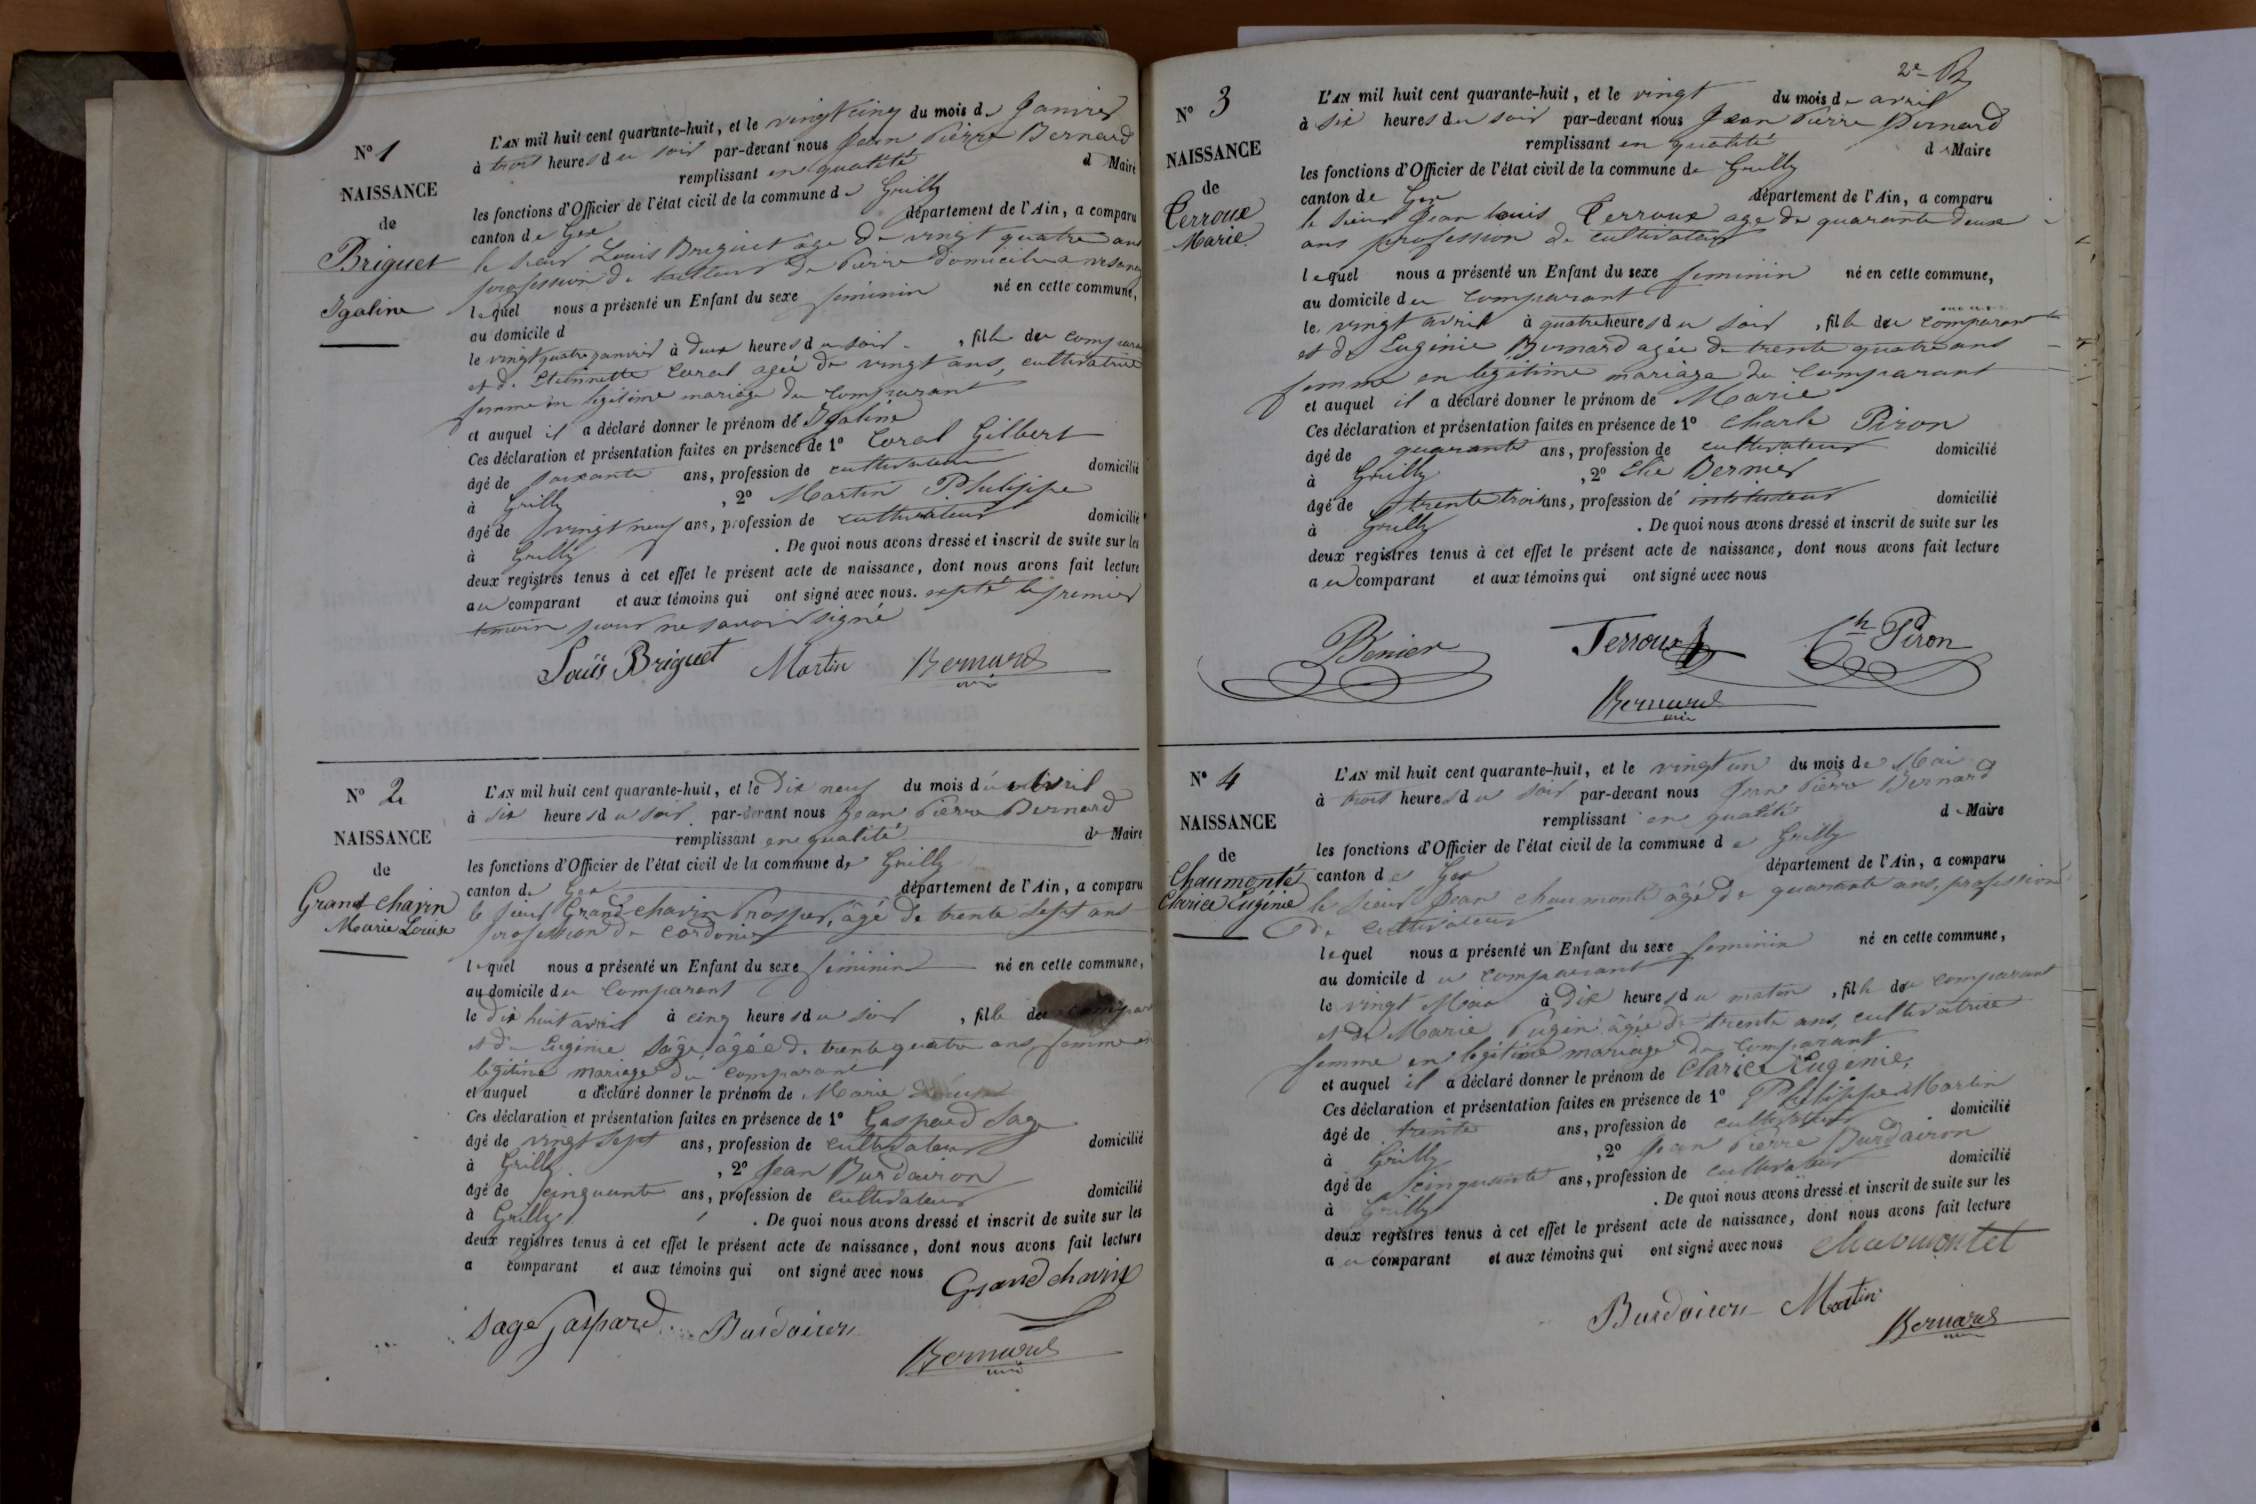 N° 1
NAISSANCE
de
Briguet
Igaline
L'AN mil huit cent quarante-huit, et le vingt cinq du mois de Janvier
à trois heures du soir par-devant nous Jean Pierre Bernard
remplissant en qualité de Maire
les fonctions d'Officier de l'état civil de la commune de Grilly
canton de Gex département de l'Ain, a comparu
le sieur Louis Briguet âge de vingt quatre ans
profession de tailleur de Pierre domicilié a
lequel nous a présenté un Enfant du sexe féminin né en cette commune,
au domicile d
le vingt quatre janvier à deux heures du soir, fille du compara
et de Etiennette Coral agée de vingt ans, cultivatrice
femme en légitime mariage du comparant
et auquel il a déclaré donner le prénom de Igaline
Ces déclaration et présentation faites en présence de 1° Coral Gilbert
âgé de soixante ans, profession de cultivateur domicilié
à Grilly, 2° Martin Philippe
âgé de vingt neuf ans, profession de cultivateur domicilié
à Grilly. De quoi nous avons dressé et inscrit de suite sur les
deux registres tenus à cet effet le présent acte de naissance, dont nous avons fait lecture
au comparant et aux témoins qui ont signé avec nous. le premier
temoin pour ne savoir signé
Louis Briguet Martin Bernard
N° 2
NAISSANCE
de
Grand chavin
Marie Louise
L'AN mil huit cent quarante-huit, et le Dix neuf du mois d'avril
à six heures du soir par-devant nous Jean Pierre Bernard
remplissant en qualité de Maire
les fonctions d'Officier de l'état civil de la commune de Grilly
canton de Gex département de l'Ain, a comparu
le sieur Grand chavin Prosper, âgé de trente sept ans
profession de cordonier
lequel nous a présenté un Enfant du sexe féminin né en cette commune,
au domicile du Comparant
le dix huit avril à cinq heures du soir, fille du compar
et de Eugénie Sage âgée de trente quatre ans, femme en
légitime mariage du comparant
et auquel a déclaré donner le prénom de Marie Louise
Ces déclaration et présentation faites en présence de 1° Gaspard Sage
âgé de vingt sept ans, profession de cultivateur domicilié
à Grilly, 2° Jean Burdairon
âgé de cinquante ans, profession de cultivateur domicilié
à Grilly. De quoi nous avons dressé et inscrit de suite sur les
deux registres tenus à cet effet le présent acte de naissance, dont nous avons fait lecture
a comparant et aux témoins qui ont signé avec nous Grand chavin
Sage Gaspard Burdairon
Bernard
2e
N° 3
NAISSANCE
de
Terroux
Marie
L'AN mil huit cent quarante-huit, et le vingt du mois de avril
à six heures du soir par-devant nous Jean Pierre Bernard
remplissant en qualité de Maire
les fonctions d'Officier de l'état civil de la commune de Grilly
canton de Gex département de l'Ain, a comparu
le sieur Jean Louis Terroux age de quarante deux
ans profession de cultivateur
lequel nous a présenté un Enfant du sexe feminin né en cette commune,
au domicile du comparant
le vingt avril à quatre heures du soir, fille du comparant
et de Eugénie Bernard agée de trente quatre ans
femme en légitime mariage du comparant
et auquel il a déclaré donner le prénom de Marie
Ces déclaration et présentation faites en présence de 1° Charle Piron
âgé de quarante ans, profession de cultivateur domicilié
à Grilly, 2° Elie Bernier
âgé de trente trois ans, profession de instituteur domicilié
à Grilly. De quoi nous avons dressé et inscrit de suite sur les
deux registres tenus à cet effet le présent acte de naissance, dont nous avons fait lecture
au comparant et aux témoins qui ont signé avec nous
Benier Terroux Ch Piron
Bernard
N° 4
NAISSANCE
de
Chaumontet
Clarice Eugénie
L'AN mil huit cent quarante-huit, et le vingt un du mois de Mai
à trois heures du soir par-devant nous Jean Pierre Bernard
remplissant en qualité de Maire
les fonctions d'Officier de l'état civil de la commune de Grilly
canton de Gex département de l'Ain, a comparu
le sieur Jean chaumontet âgé de quarante ans, profession
de cultivateur
lequel nous a présenté un Enfant du sexe feminin né en cette commune,
au domicile du comparant
le vingt Mai à dix heures du matin, fille du comparant
et de Marie Pugin âgée de trente ans, cultivatrice
femme en légitime mariage du comparant
et auquel il a déclaré donner le prénom de Clarice Eugénie,
Ces déclaration et présentation faites en présence de 1° Philippe Martin
âgé de trente ans, profession de cultivateur domicilié
à Grilly, 2° Jean Pierre Burdairon
âgé de cinquante ans, profession de cultivateur domicilié
à Grilly. De quoi nous avons dressé et inscrit de suite sur les
deux registres tenus à cet effet le présent acte de naissance, dont nous avons fait lecture
au comparant et aux témoins qui ont signé avec nous Chaumontet
Burdairon Martin
Bernard